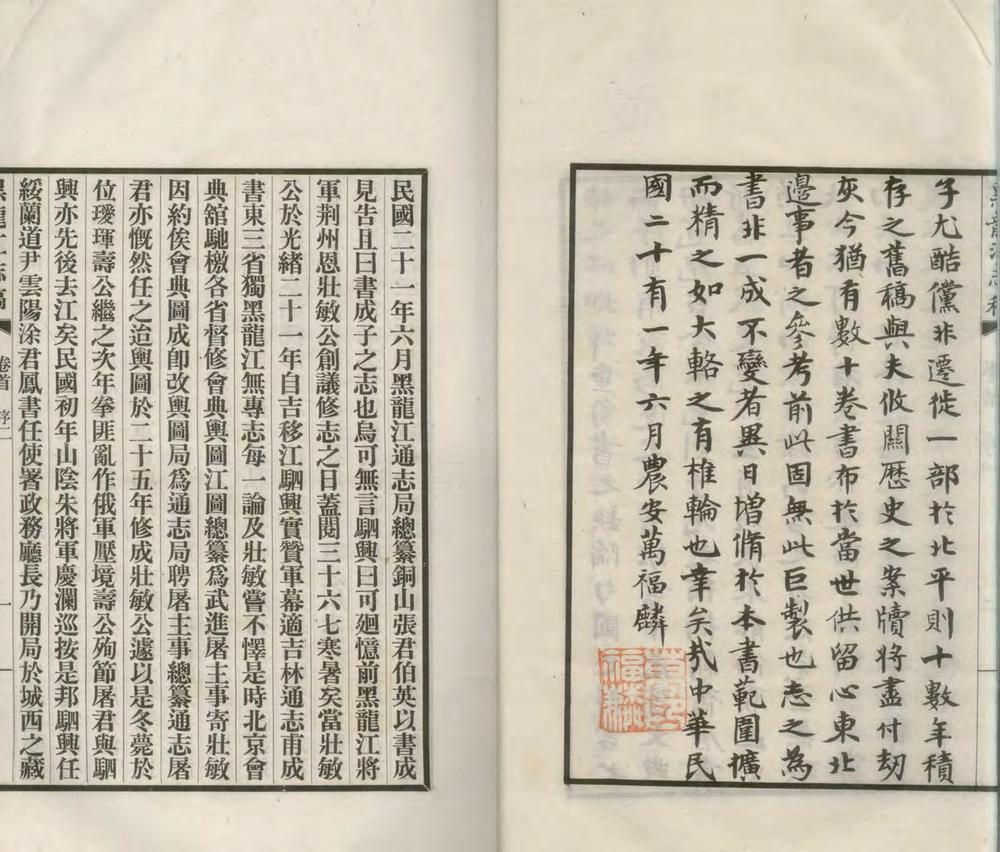 子尤酷儻非遷徙一部於北平則十數年積
存之舊稿與夫攸關歷史之案牘將盡付刼
灰今猶有數十卷書布於當世供留心東北
邊事者之參考前此固無此巨製也志之為
書非一成不變者異日增脩於本書範圍擴
而精之如大輅之有椎輪也幸矣哉中華民
國二十有一年六月農安萬福麟
萬福麟
民國二十一年六月黑龍江通志局總纂銅山張君伯英以書成
見告且曰書成子之志也烏可無言駟興曰可廻憶前黑龍江將
軍荆州恩壯敏公創議修志之日蓋閱三十六七寒暑矣當壯敏
公於光緒二十一年自吉移江駟興實贊軍幕適吉林通志甫成
書東三省獨黑龍江無專志每一論及壯敏嘗不懌是時北京會
典舘馳檄各省督修會典輿圖江圖總纂爲武進屠主事寄壯敏
因約俟會典圖成卽改輿圖局爲通志局聘屠主事總纂通志屠
君亦慨然任之迨輿圖於二十五年修成壯敏公遽以是冬薨於
位璦琿壽公繼之次年拳匪亂作俄軍壓境壽公殉節屠君與駟
興亦先後去江矣民國初年山陰朱將軍慶瀾巡按是邦駟興任
綏蘭道尹雲陽涂君鳳書任使署政務廳長乃開局於城西之藏
黑龍江志稿 卷首 序二 一